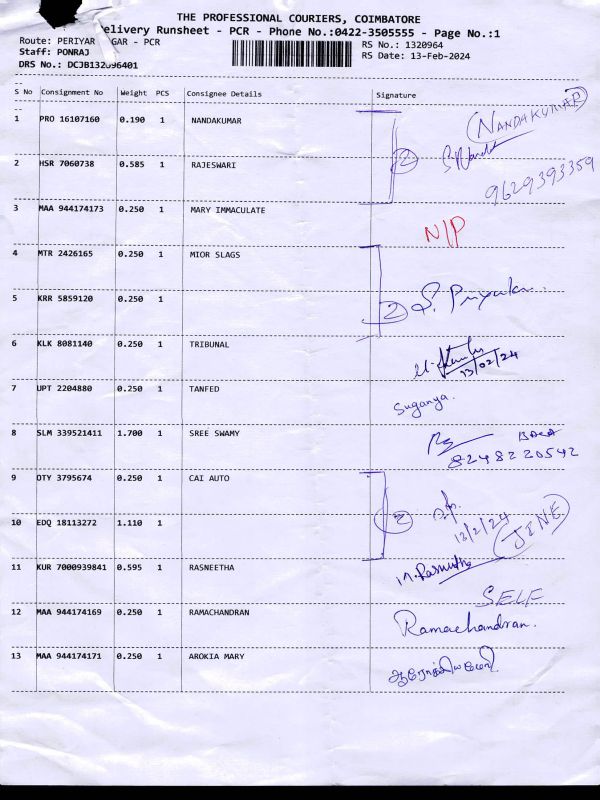 THE PROFESSIONAL COURIERS, COIMBATORE
elivery Runsheet - PCR - Phone No.:0422-3505555 - Page No.:1
Route: PERIYAR GAR - PCR
RS No.: 1320964
Staff: PONRAJ
RS Date: 13-Feb-2024
DRS No.: DCJB132096401
S No Consignment No Weight PCS Consignee Details Signature
1 PRO 16107160 0.190 1 NANDAKUMAR
NANDAKUMAR
2 HSR 7060738 0.585 1 RAJESWARI
2
9629393359
3 MAA 944174173 0.250 1 MARY IMMACULATE
N/P
4 MTR 2426165 0.250 1 MIOR SLAGS
5 KRR 5859120 0.250 1
2 S. Priyanka.
6 KLK 8081140 0.250 1 TRIBUNAL
13/02/24
7 UPT 2204880 0.250 1 TANFED
Suganya.
8 SLM 339521411 1.700 1 SREE SWAMY
8248220542
9 OTY 3795674 0.250 1 CAI AUTO
2
13/2/24
10 EDQ 18113272 1.110 1
JINE
11 KUR 7000939841 0.595 1 RASNEETHA
SELF
12 MAA 944174169 0.250 1 RAMACHANDRAN
Ramachandran.
13 MAA 944174171 0.250 1 AROKIA MARY
ஆரோக்கியமேரி